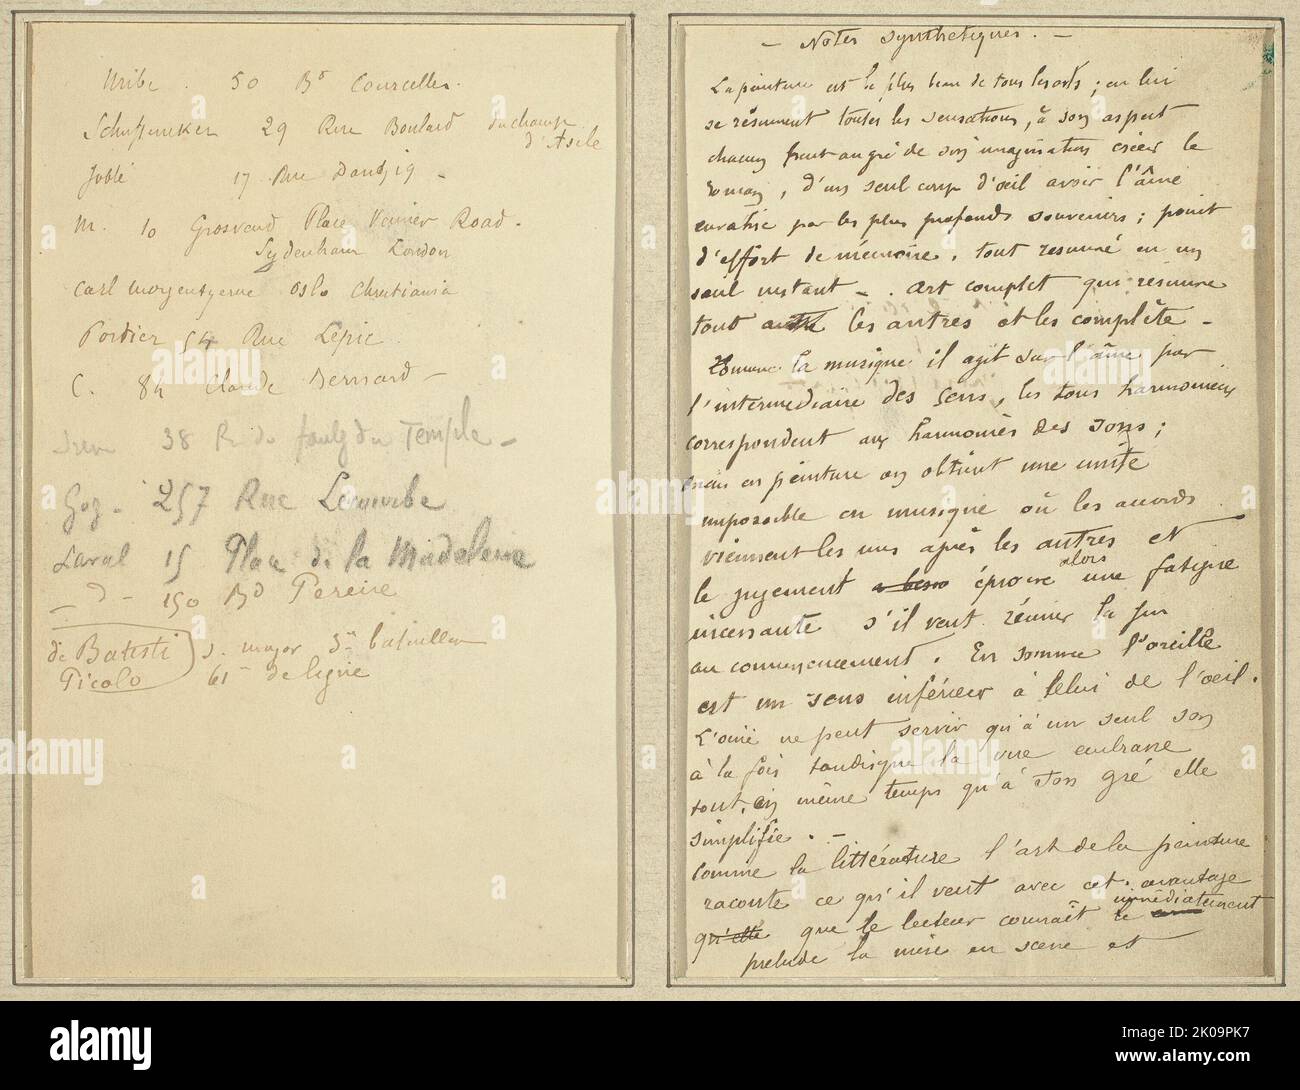 Uribe . 50 Bd Courcelles.
Schuffeneker 29 Rue Boulard duchamp
d'Asile
Jobbé 17 Rue Dantzig -
M. 10 Grosvend Place Venner Road -
Sydenham London
Carl Morgenstjerne Oslo Christiania
Portier 54 Rue Lepic
C. 84 Claude Bernard -
38 R. du faubg du Temple -
257 Rue Lecourbe
Laval 15 Place de la Madeleine
- d - 150 Bd Pereire
de Batisti s. major 3me bataillon
Picolo 61me de ligne
- Notes Synthetiques. -
La peinture est le plus beau de tous les arts ; en lui
se résument toutes les sensations, à son aspect
chacun peut au gré de son imagination créer le
roman, d'un seul coup d'oeil avoir l'âme
envahie par les plus profonds souvenirs ; point
d'effort de mémoire, tout résumé en un
seul instant -. Art complet qui résume
tout les autres et les complète -
Comme la musique il agit sur l'âme par
l'intermédiaire des sens, les tons harmonieux
correspondent aux harmonies des sons ;
mais en peinture on obtient une unité
impossible en musique où les accords
viennent les uns après les autres et
le jugement éprouve alors une fatigue
incessante s'il veut réunir la fin
au commencement. En somme l'oreille
est un sens inférieur à celui de l'oeil.
L'ouïe ne peut servir qu'à un seul son
à la fois tandisque la vue embrasse
tout, en même temps qu'à son gré elle
simplifie. -
Comme la littérature l'art de la peinture
raconte ce qu'il veut avec cet avantage
qu'elle que le lecteur connaît immédiatement le
prelude la mise en scene et
alamy
a
alamy
Image ID: 2K09PK7
www.alamy.com